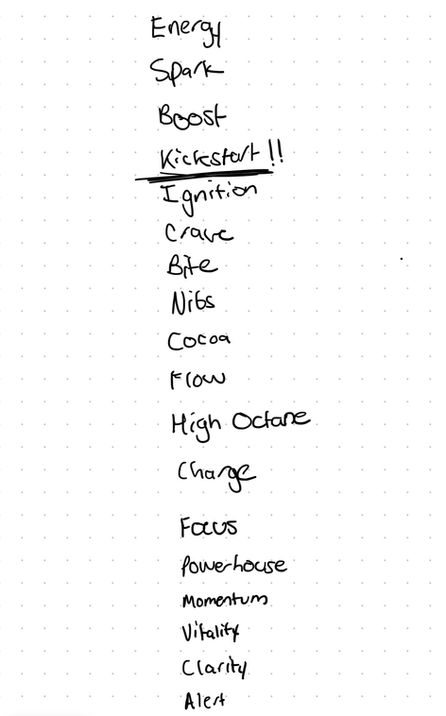 Energy
Spark
Boost
Kickstart!!
Ignition
Crave
Bite
Nibs
Cocoa
Flow
High Octane
Charge
Focus
Powerhouse
Momentum
Vitality
Clarity
Alert